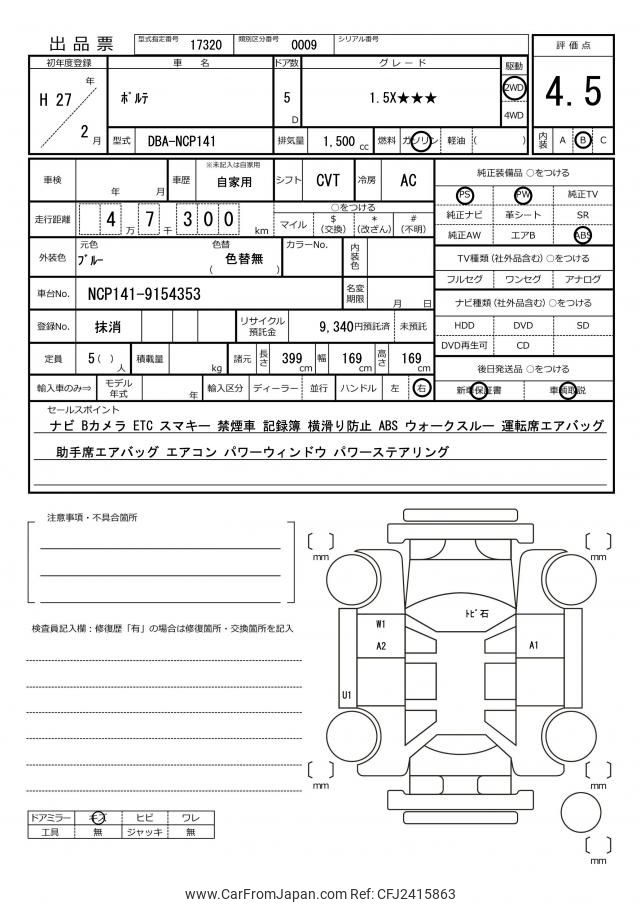 出品票 型式指定番号 17320 類別区分番号 0009 シリアル番号
評価点
4.5
内装 A B C
初年度登録 車名 ドア数 グレード 駆動
H 27 年 2 月
ポルテ
5 D
1.5X★★★
2WD
4WD
型式 DBA-NCP141 排気量 1,500 cc 燃料 ガソリン 軽油 ( )
車検 年 月 車歴 ※未記入は自家用 自家用 シフト CVT 冷房 AC
走行距離 4 万 7 千 3 0 0 km
○をつける
マイル $ (交換) * (改ざん) # (不明)
外装色 元色 ブルー 色替 色替無 ( ) カラーNo. 内装色
車台No. NCP141-9154353 名変期限 月 日
登録No. 抹消 リサイクル預託金 9,340円預託済 未預託
定員 5( ) 人 積載量 kg 諸元 長さ 399 cm 幅 169 cm 高さ 169 cm
輸入車のみ⇒ モデル年式 年 輸入区分 ディーラー 並行 ハンドル 左 右
純正装備品 ○をつける
PS PW 純正TV
純正ナビ 革シート SR
純正AW エアB ABS
TV種類 (社外品含む) ○をつける
フルセグ ワンセグ アナログ
ナビ種類 (社外品含む) ○をつける
HDD DVD SD
DVD再生可 CD
後日発送品 ○をつける
新車保証書 車輌取説
セールスポイント
ナビ Bカメラ ETC スマキー 禁煙車 記録簿 横滑り防止 ABS ウォークスルー 運転席エアバッグ
助手席エアバッグ エアコン パワーウィンドウ パワーステアリング
注意事項・不具合箇所
検査員記入欄：修復歴「有」の場合は修復箇所・交換箇所を記入
ドアミラー キズ ヒビ ワレ
工具 無 ジャッキ 無
mm
mm
トビ石
W1
A2
A1
U1
mm
mm
mm
www.CarFromJapan.com Ref: CFJ2415863